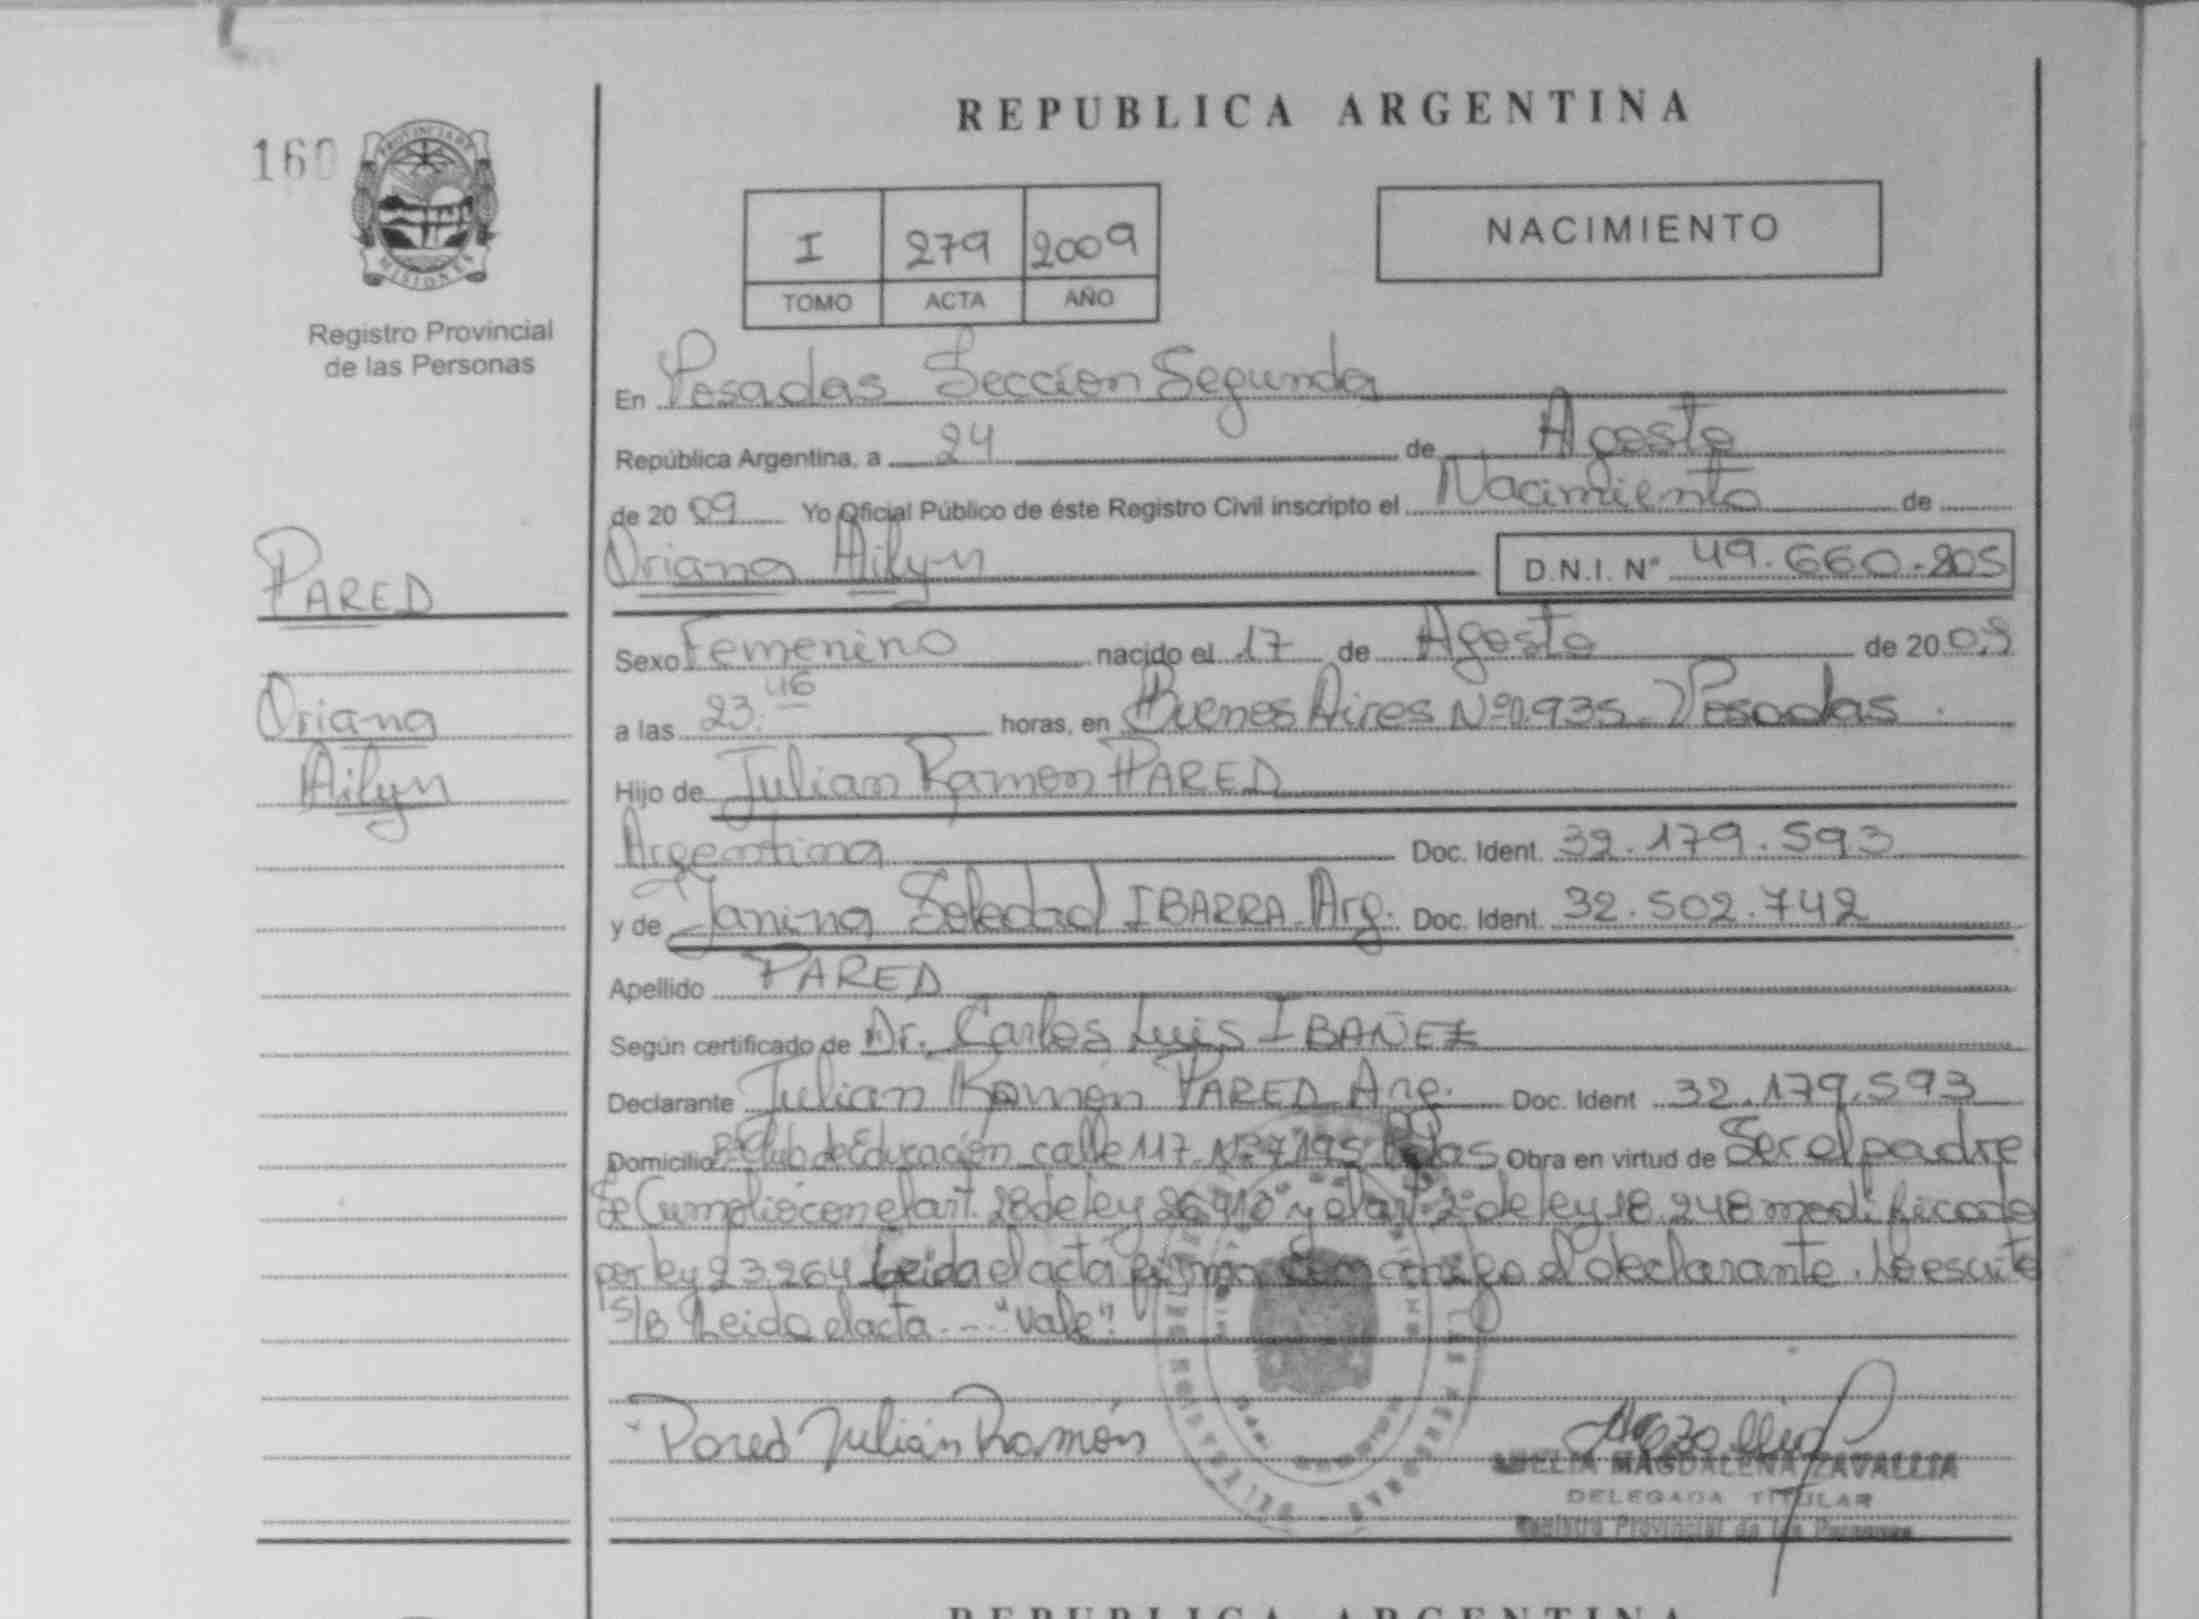 REPUBLICA ARGENTINA
160
PROVINCIA DE
MISIONES
Registro Provincial
de las Personas
I 279 2009
TOMO ACTA AÑO
NACIMIENTO
En Posadas Seccion Segunda
República Argentina, a 24 de Agosto
de 2009 Yo Oficial Público de éste Registro Civil inscripto el Nacimiento de
Oriana Ailyn D.N.I. N° 49.660.205
PARED
Oriana
Ailyn
Sexo Femenino nacido el 17 de Agosto de 2009
a las 23.46 horas, en Buenos Aires Nº 1.935. Posadas.
Hijo de Julian Ramon PARED
Argentina Doc. Ident. 32.179.593
y de Janina Soledad IBARRA. Arg. Doc. Ident. 32.502.742
Apellido PARED
Según certificado de Dr. Carlos Luis IBAÑEZ
Declarante Julian Ramón PARED Arg. Doc. Ident 32.179.593
Domicilio Club de Educación calle 117 Nº 7195 Obra en virtud de Ser el padre
Se Cumplio con el art. 28 de ley y el art. 2º de ley 18.248 modificado
por ley 23.264 Leida el acta firma conmigo el declarante. Lo escrito
S/B Leido el acta --- "Vale"
Pared Julián Ramón
MAGDALENA ZAVALLIA
DELEGADA TITULAR
Registro Provincial de las Personas
REPUBLICA ARGENTINA